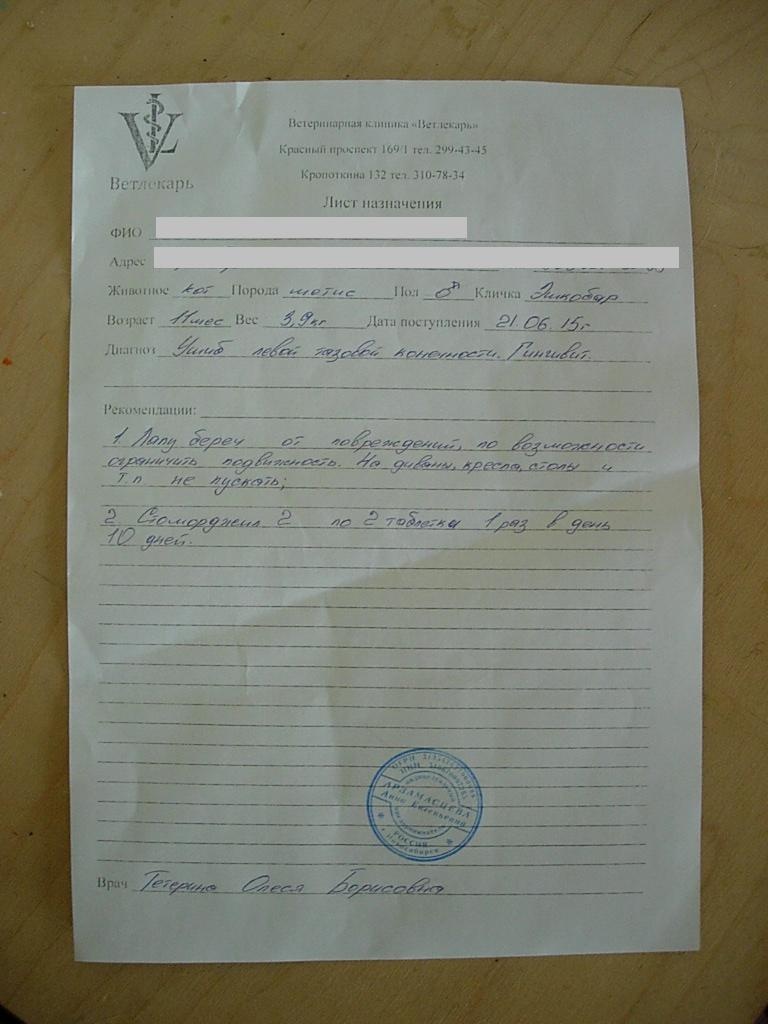 Ветеринарная клиника «Ветлекарь»
Красный проспект 169/1 тел. 299-43-45
Кропоткина 132 тел. 310-78-34
Ветлекарь
Лист назначения
ФИО
Адрес
Животное кот Порода шотис Пол ♂ Кличка Эскобар
Возраст 11 мес Вес 3,9 кг Дата поступления 21.06.15г
Диагноз Ушиб левой тазовой конечности. Гингивит.
Рекомендации:
1 Лапу береч от повреждений, по возможности
ограничить подвижность. На диваны, кресла, столы и
т.п не пускать;
2 Стоморджил 2 по 2 таблетки 1 раз в день
10 дней.
ОГРН
ИНН
АРЗАМАСЦЕВА
Анна Евгеньевна
предприниматель
РОССИЯ
г. Новосибирск
Врач Тетерина Олеся Борисовна